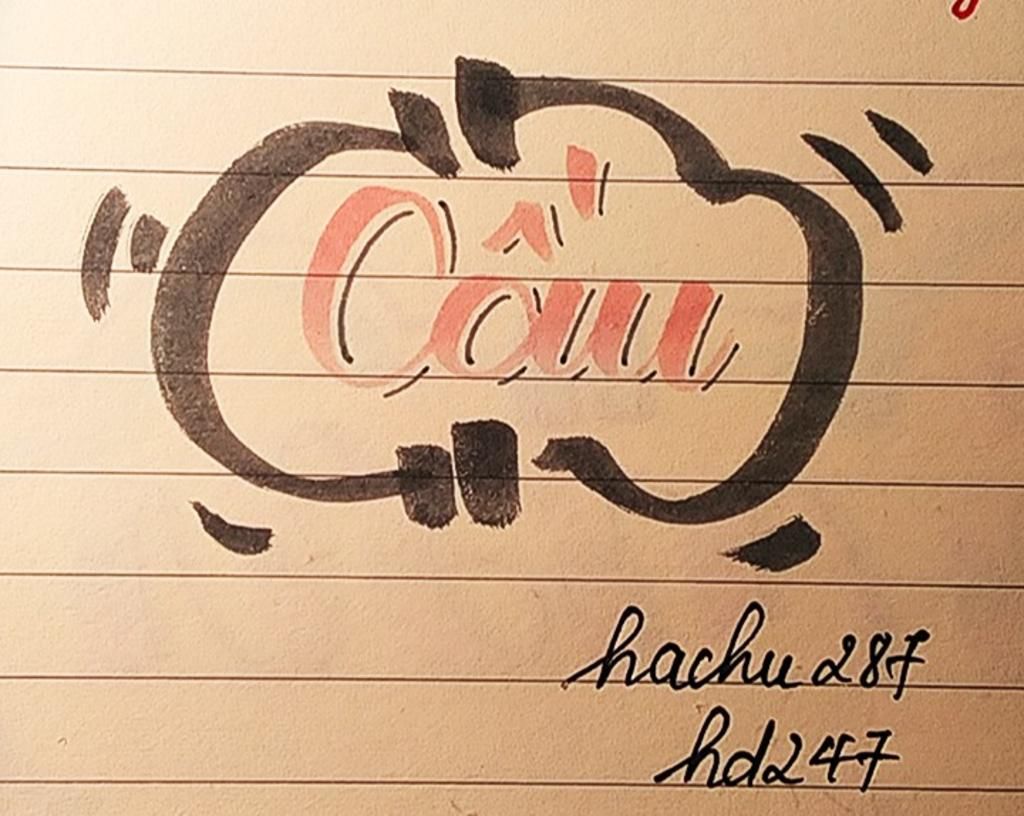 Cấu
hachu287
hd247